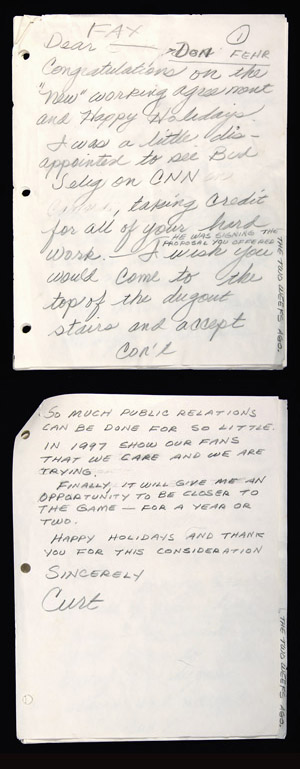 FAX
①
Dear — Don FEHR
Congratulations on the
"New" working agreement
and Happy Holidays.
I was a little dis-
appointed to see Bud
Selig on CNN
, taking credit
for all of your hard
HE WAS SIGNING THE
PROPOSAL YOU OFFERED
work. — I wish you
would come to the
top of the dugout
stairs and accept
Con't
THE TWO WEEKS AGO.
SO MUCH PUBLIC RELATIONS
CAN BE DONE FOR SO LITTLE.
IN 1997 SHOW OUR FANS
THAT WE CARE AND WE ARE
TRYING.
FINALLY, IT WILL GIVE ME AN
OPPORTUNITY TO BE CLOSER TO
THE GAME — FOR A YEAR OR
TWO.
HAPPY HOLIDAYS AND THANK
YOU FOR THIS CONSIDERATION
SINCERELY
Curt
THE TWO WEEKS AGO.